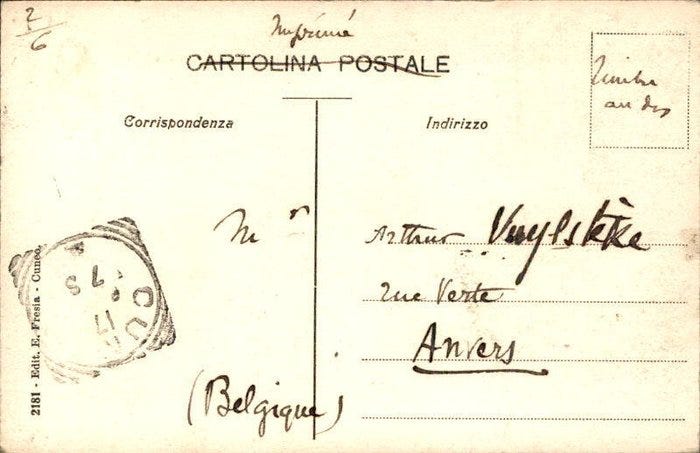 2/6
Imprimé
CARTOLINA POSTALE
Timbre
au dos
Corrispondenza
Indirizzo
Mr
Arthur Vuylstèke
rue Verte
Anvers
(Belgique)
2181 - Edit. E. Fresia - Cuneo.